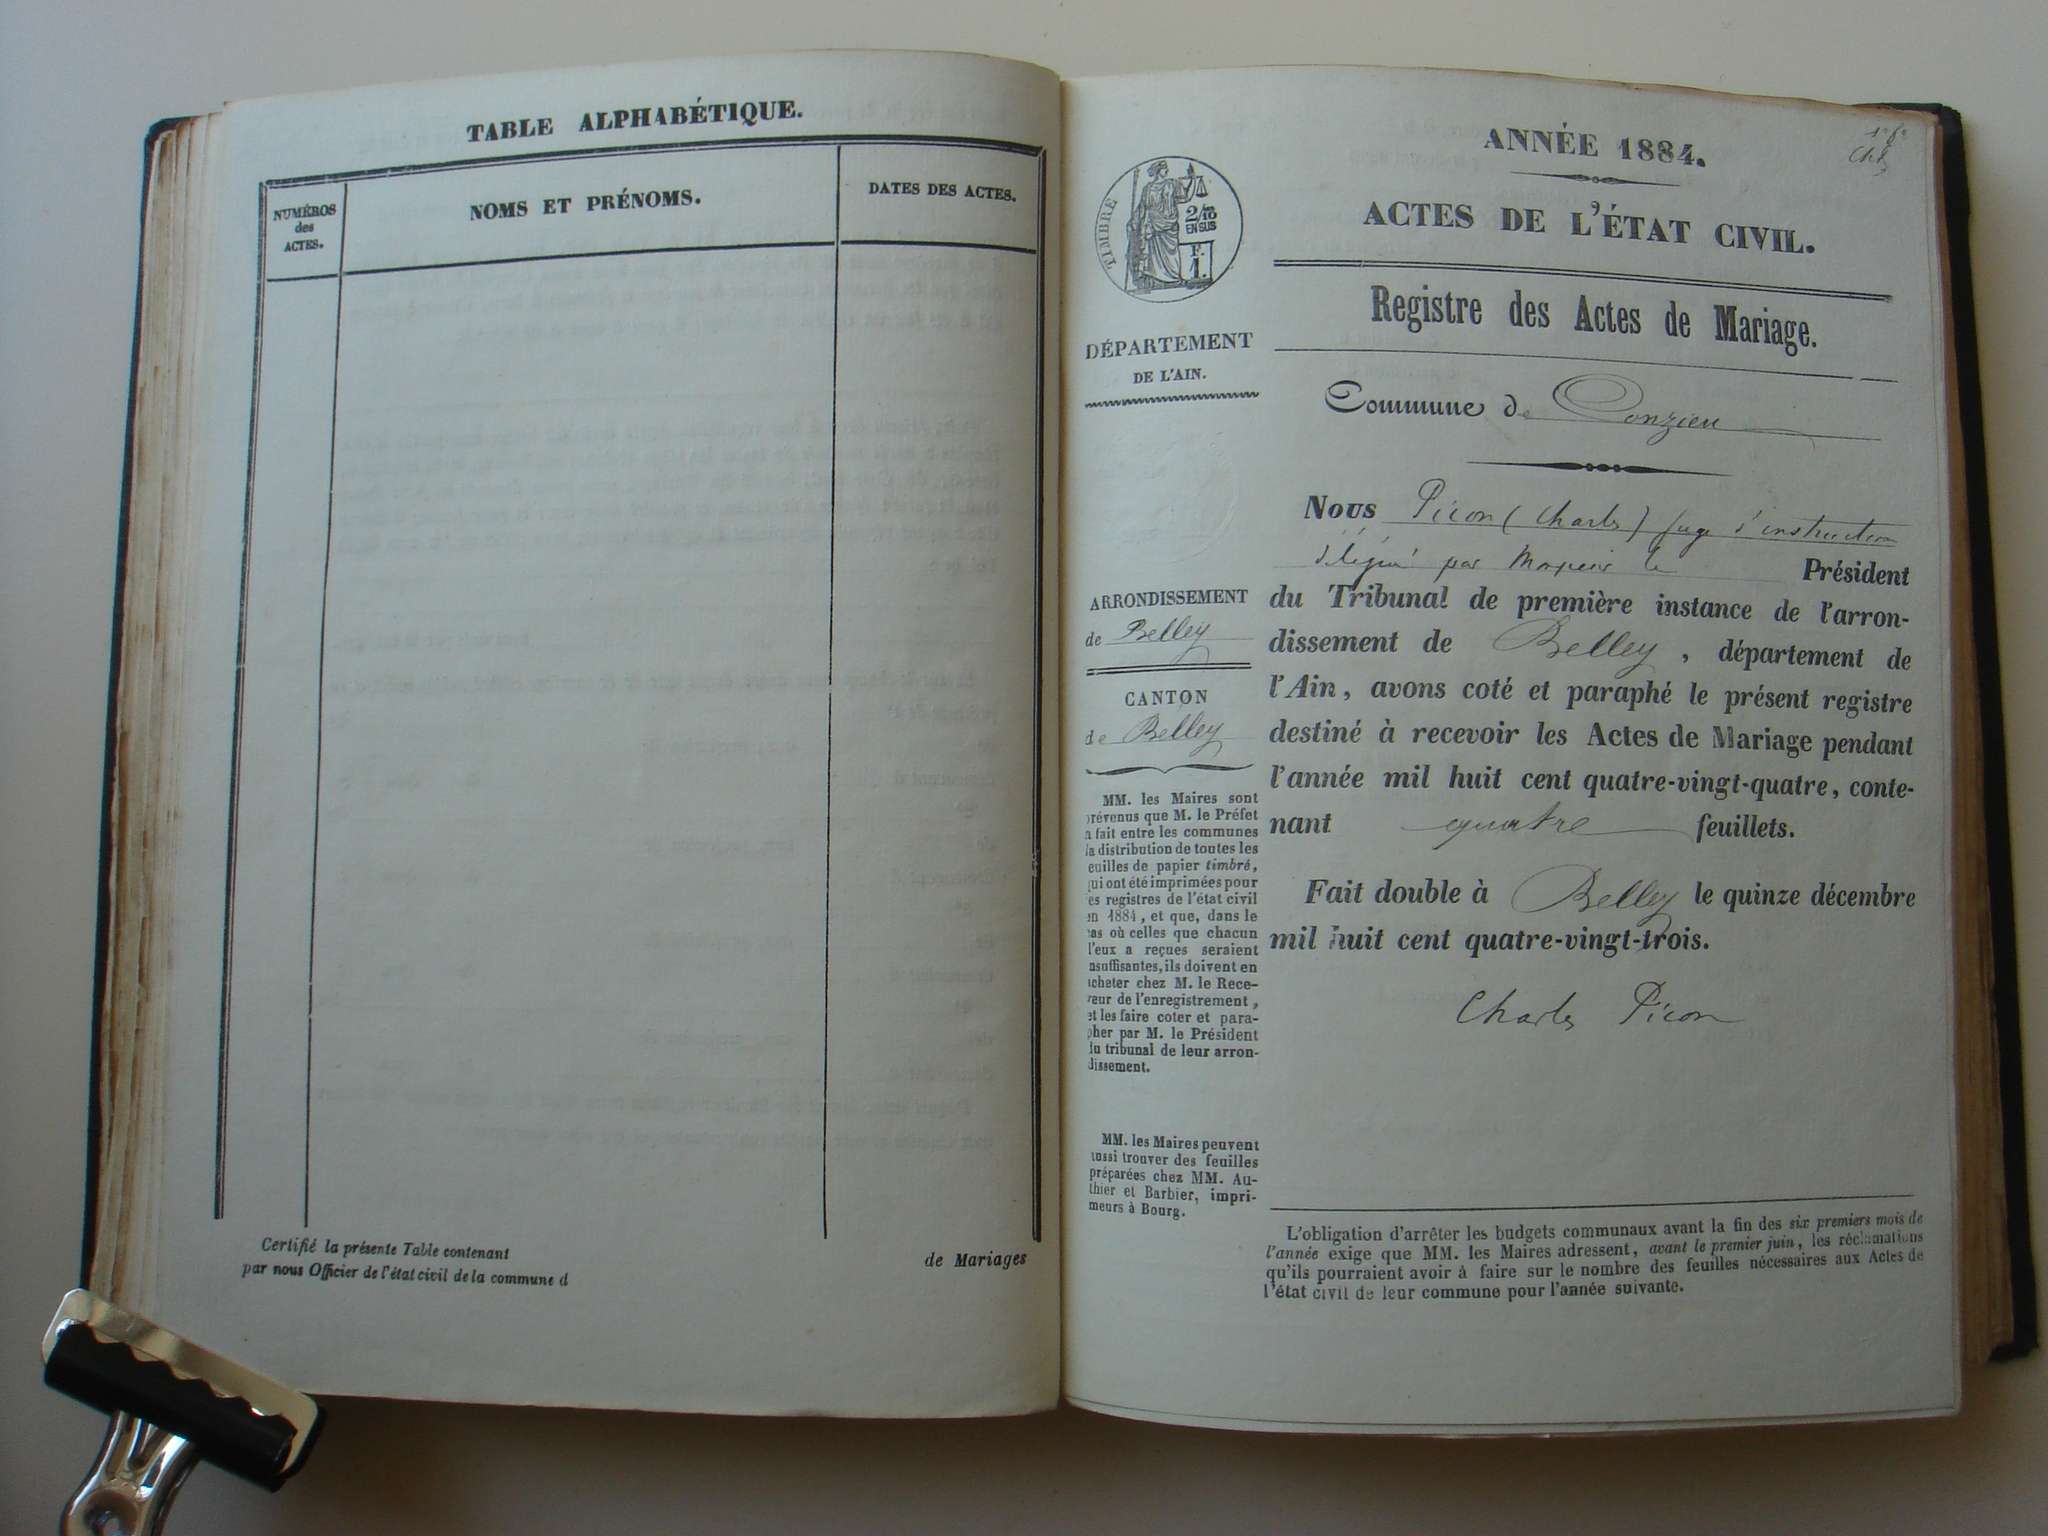 TABLE ALPHABÉTIQUE.
NUMÉROS
des
ACTES.
NOMS ET PRÉNOMS.
DATES DES ACTES.
Certifié la présente Table contenant
de Mariages
par nous Officier de l'état civil de la commune d
TIMBRE
2/10
EN SUS
F.
1.
DÉPARTEMENT
DE L'AIN.
ARRONDISSEMENT
de Belley
CANTON
de Belley
MM. les Maires sont
prévenus que M. le Préfet
a fait entre les communes
la distribution de toutes les
euilles de papier timbré,
qui ont été imprimées pour
es registres de l'état civil
en 1884, et que, dans le
cas où celles que chacun
l'eux a reçues seraient
nsuffisantes, ils doivent en
acheter chez M. le Rece-
veur de l'enregistrement,
et les faire coter et para-
pher par M. le Président
du tribunal de leur arron-
dissement.
MM. les Maires peuvent
aussi trouver des feuilles
préparées chez MM. Au-
thier et Barbier, impri-
meurs à Bourg.
ANNÉE 1884.
ACTES DE L'ÉTAT CIVIL.
Registre des Actes de Mariage.
Commune de Conzieu
Nous Picon (Charles) juge d'instruction
délégué par Monsieur le Président
du Tribunal de première instance de l'arron-
dissement de Belley, département de
l'Ain, avons coté et paraphé le présent registre
destiné à recevoir les Actes de Mariage pendant
l'année mil huit cent quatre-vingt-quatre, conte-
nant quatre feuillets.
Fait double à Belley le quinze décembre
mil huit cent quatre-vingt-trois.
Charles Picon
L'obligation d'arrêter les budgets communaux avant la fin des six premiers mois de
l'année exige que MM. les Maires adressent, avant le premier juin, les réclamations
qu'ils pourraient avoir à faire sur le nombre des feuilles nécessaires aux Actes de
l'état civil de leur commune pour l'année suivante.